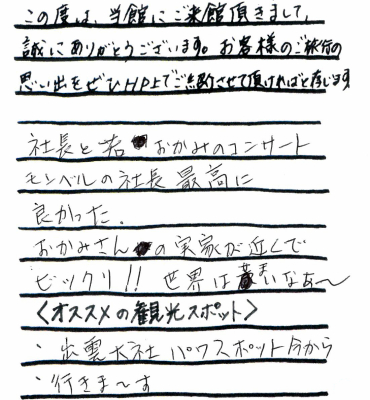 この度は、当館にご来館頂きまして、
誠にありがとうございます。お客様のご旅行の
思い出をぜひHP上でご紹介させて頂ければと存じます
社長と若おかみのコンサート
モンベルの社長 最高に
良かった.
おかみさんの実家が近くで
ビックリ!! 世界はせまいなぁ〜
〈オススメの観光スポット〉
・出雲大社 パワスポット今から
・行きま〜す